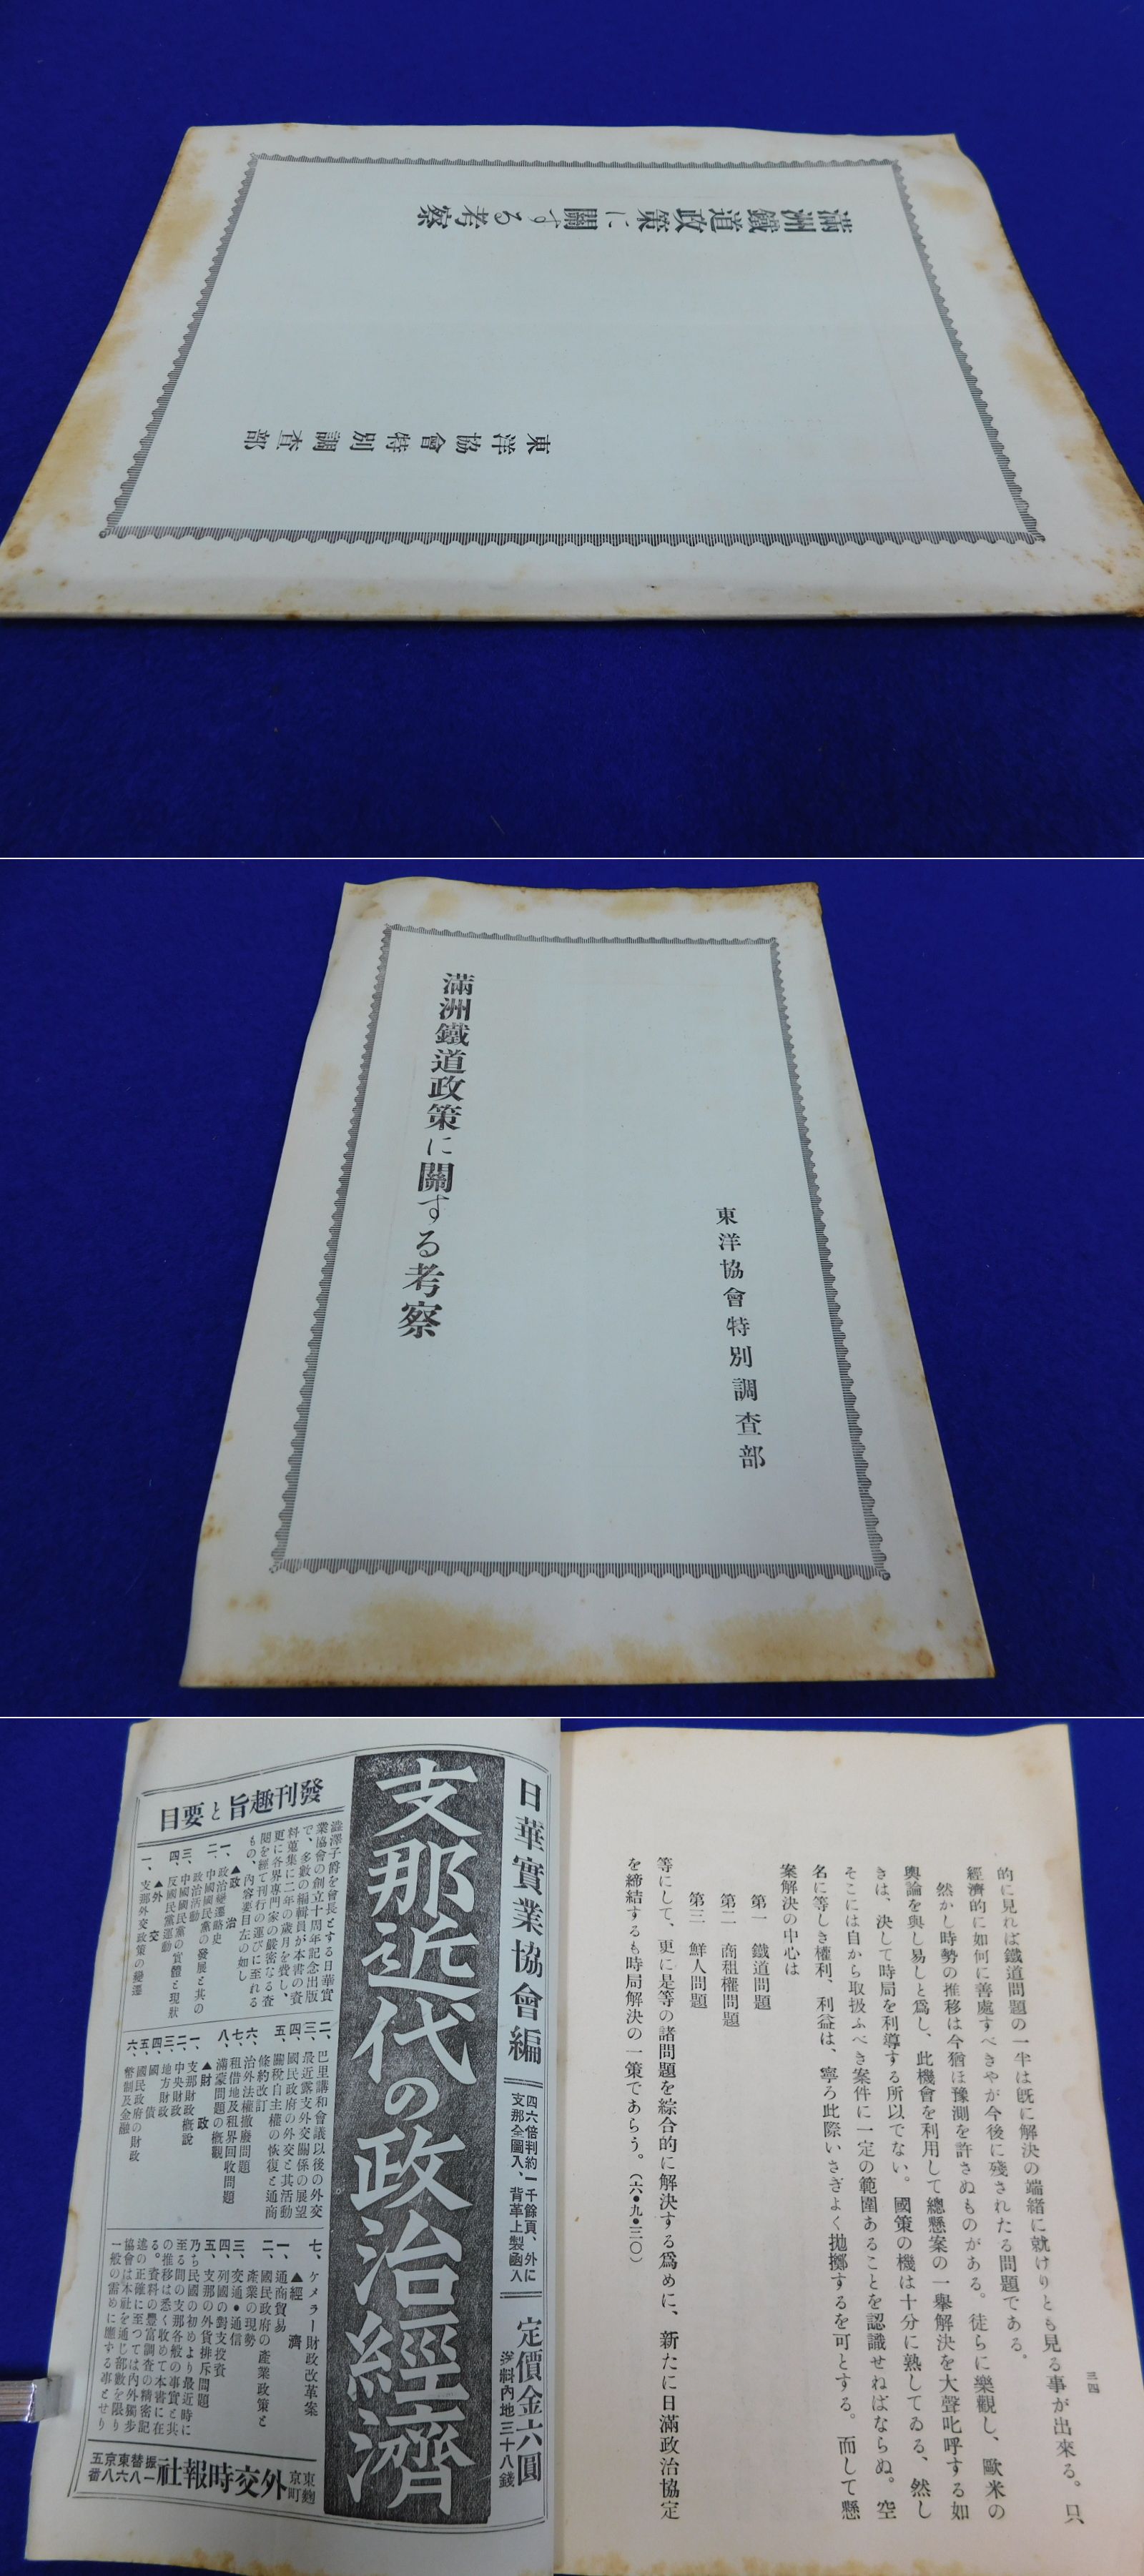 滿洲鐵道政策に關する考察
東洋協會特別調査部
滿洲鐵道政策に關する考察
東洋協會特別調査部
三四
的に見れば鐵道問題の一半は既に解決の端緒に就けりとも見る事が出來る。只
經濟的に如何に善處すべきやが今後に殘されたる問題である。
然かし時勢の推移は今猶ほ豫測を許さぬものがある。徒らに樂觀し、歐米の
輿論を與し易しと爲し、此機會を利用して總懸案の一擧解決を大聲叱呼する如
きは、決して時局を利導する所以でない。國策の機は十分に熟してゐる、然し
そこには自から取扱ふべき案件に一定の範圍あることを認識せねばならぬ。空
名に等しき權利、利益は、寧ろ此際いさぎよく拋擲するを可とする。而して懸
案解決の中心は
第一 鐵道問題
第二 商租權問題
第三 鮮人問題
等にして、更に是等の諸問題を綜合的に解決する爲めに、新たに日滿政治協定
を締結するも時局解決の一策であらう。(六•九•二〇)
日華實業協會編
四六倍判約一千餘頁、外に
支那全圖入、背革上製函入
定價金六圓
送料內地三十八錢
支那近代の政治經濟
發刊趣旨と要目
澁澤子爵を會長とする日華實
業協會の創立十周年記念出版
で、多數の編輯員が本書の資
料蒐集に二年の歲月を費し、
更に各界專門家の嚴密なる査
閱を經て刊行の運びに至れる
もの、內容要目左の如し
▲政治
一、政治變遷略史
二、中國國民黨の發展と其の
政治活動
三、中國國民黨の實體と現狀
四、反國民黨運動
▲外交
一、支那外交政策の變遷
二、巴里講和會議以後の外交
三、最近露支外交關係の展望
四、國民政府の外交と其活動
五、關稅自主權の恢復と通商
條約改訂
六、治外法權撤廢問題
七、租借地及租界回收問題
八、滿蒙問題の槪觀
▲財政
一、支那財政槪說
二、中央財政
三、地方財政
四、國債
五、國民政府の財政
六、幣制及金融
七、ケメラー財政改革案
▲經濟
一、通商貿易
二、國民政府の產業政策と
產業の現勢
三、交通•通信
四、列國の對支投資
五、支那の外貨排斥問題
乃ち民國の初めより最近時に
至る間の支那各般の事實と其
の推移は悉く收めて本書に在
る。資料の豐富調査の精密記
述の正確に至つては內外獨步
協會は本社を通じ部數を限り
一般の需めに應ずる事とせり
東京麴町
外交時報社
振替東京
一八六八五番